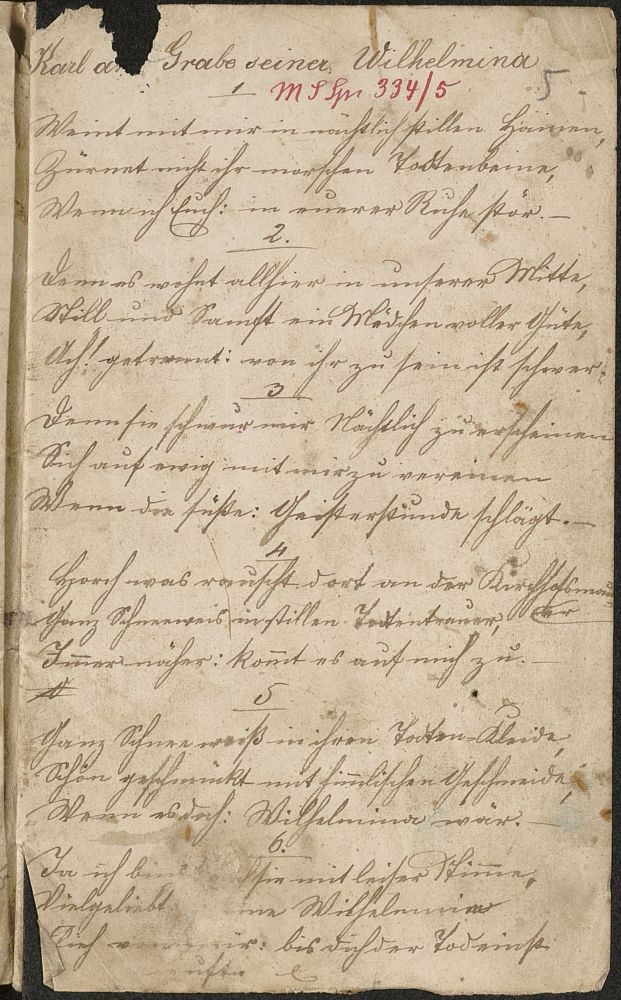 Karl a Grabe seiner Wilhelmina
1 MS Hn 334/5 5
Weint mit mir in nächtlich stillen Hainen,
Zürnet nicht ihr morschen Todtenbeine,
Wenn ich Euch: in eurer Ruhe stör. —
2.
Denn es wohnt allhier in unserer Mitte,
Still und Sanft ein Mädchen voller Güte,
Ach! getrennt: von ihr zu sein ist schwer.
3
Denn sie schwur mir Nächtlich zu erscheinen
Sich auf ewig mit mir zu vereinen
Wenn die süße: Geisterstunde schlägt. —
4
Horch was rauscht dort an der Kirchhofsmau
Ganz Schneeweis in stillen Todtentrauer, er
Immer näher: komt es auf mich zu. —
5
Ganz Schnee weiß in ihren Todten-Kleide
Schön geschmückt mit himlischen Geschmeide,
Wenn es doch: Wilhelmina wär. —
6.
Ja ich bins sie mit leiser Stime,
Vielgeliebt ne Wilhelmine
Flieh von mir: bis dich der Tod einst
ruft.